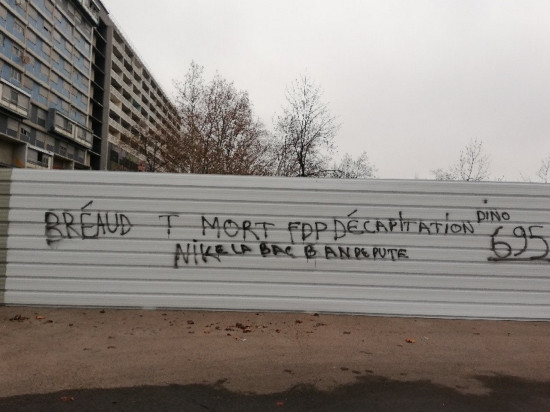 BRÉAUD T MORT FDP DÉCAPITATION DINO 695
NIKE LA BAC BANDEPUTE